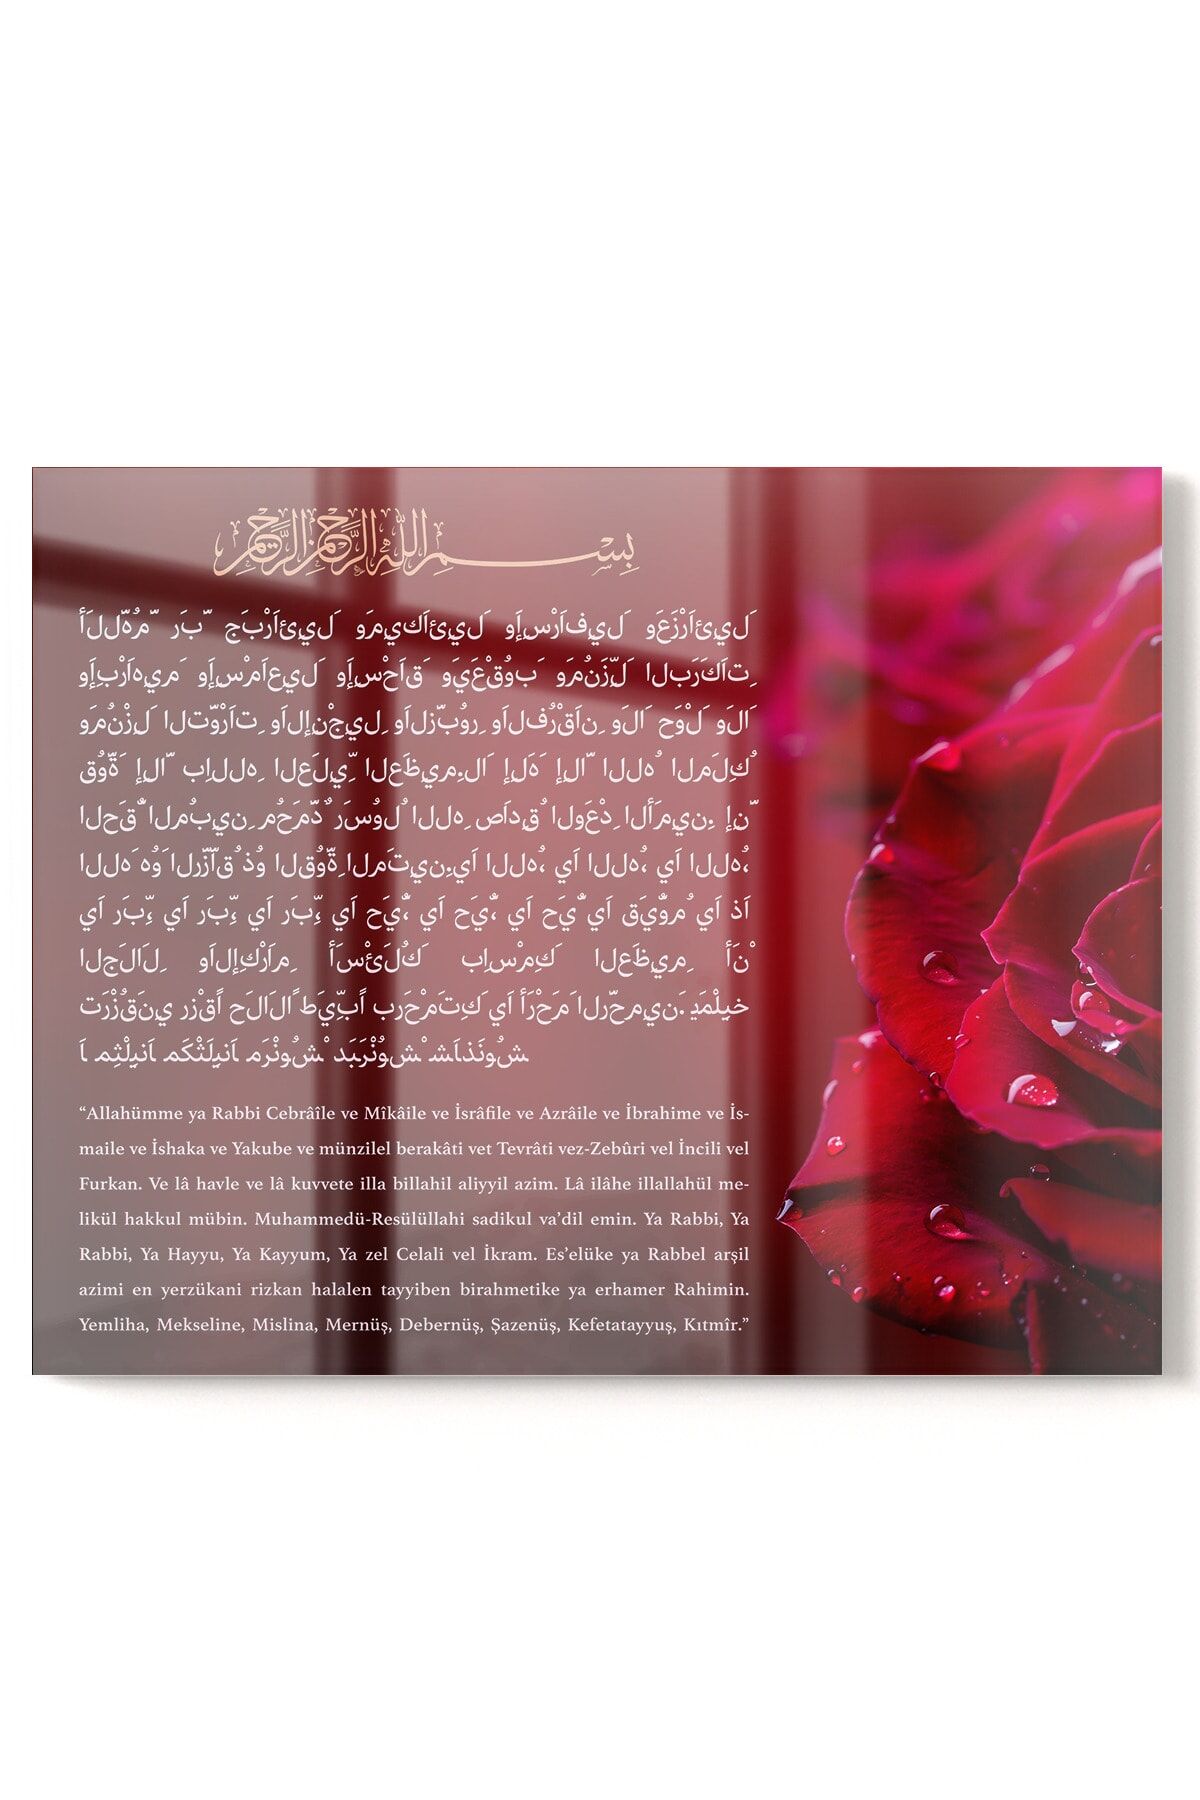 بِسْمِ اللهِ الرَّحْمٰنِ الرَّحِيمِ
أَللّهُمَّ رَبَّ جَبْرَائِيلَ وَمِيكَائِيلَ وَإِسْرَافِيلَ وَعَزْرَائِيلَ
وَإِبْرَاهِيمَ وَإِسْمَاعِيلَ وَإِسْحَاقَ وَيَعْقُوبَ وَمُنَزِّلَ البَرَكَاتِ
وَمُنْزِلَ التَّوْرَاتِ وَالإِنْجِيلِ وَالزَّبُورِ وَالفُرْقَانِ وَلاَ حَوْلَ وَلاَ
قُوَّةَ إِلاَّ بِاللهِ العَلِيِّ العَظِيمِ. لاَ إِلَهَ إِلاَّ اللهُ المَلِكُ
الحَقُّ المُبِينِ مُحَمَّدٌ رَسُولُ اللهِ صَادِقُ الوَعْدِ الأَمِينِ. إِنَّ
اللهَ هُوَ الرَّزَّاقُ ذُو القُوَّةِ المَتِينِ. يَا اللهُ، يَا اللهُ، يَا اللهُ،
يَا رَبِّ، يَا رَبِّ، يَا رَبِّ، يَا حَيُّ، يَا حَيُّ، يَا حَيُّ يَا قَيُّومُ يَا ذَا
الجَلاَلِ وَالإِكْرَامِ أَسْئَلُكَ بِاسْمِكَ العَظِيمِ أَنْ
تَرْزُقَنِي رِزْقًا حَلاَلاً طَيِّبًا بِرَحْمَتِكَ يَا أَرْحَمَ الرَّحِمِينَ. يَمْلِيخَ
اَ مِثْلِينَا مَكْثَلِينَا مَرْنُوشْ دَبَرْنُوشْ شَاذَنُوشْ
“Allahümme ya Rabbi Cebrâîle ve Mîkâile ve İsrâfile ve Azrâile ve İbrahime ve İs-
maile ve İshaka ve Yakube ve münzilel berakâti vet Tevrâti vez-Zebûri vel İncili vel
Furkan. Ve lâ havle ve lâ kuvvete illa billahil aliyyil azim. Lâ ilâhe illallahül me-
likül hakkul mübin. Muhammedü-Resülüllahi sadikul va’dil emin. Ya Rabbi, Ya
Rabbi, Ya Hayyu, Ya Kayyum, Ya zel Celali vel İkram. Es’elüke ya Rabbel arşil
azimi en yerzükani rizkan halalen tayyiben birahmetike ya erhamer Rahimin.
Yemliha, Mekseline, Mislina, Mernüş, Debernüş, Şazenüş, Kefetatayyuş, Kıtmîr.”